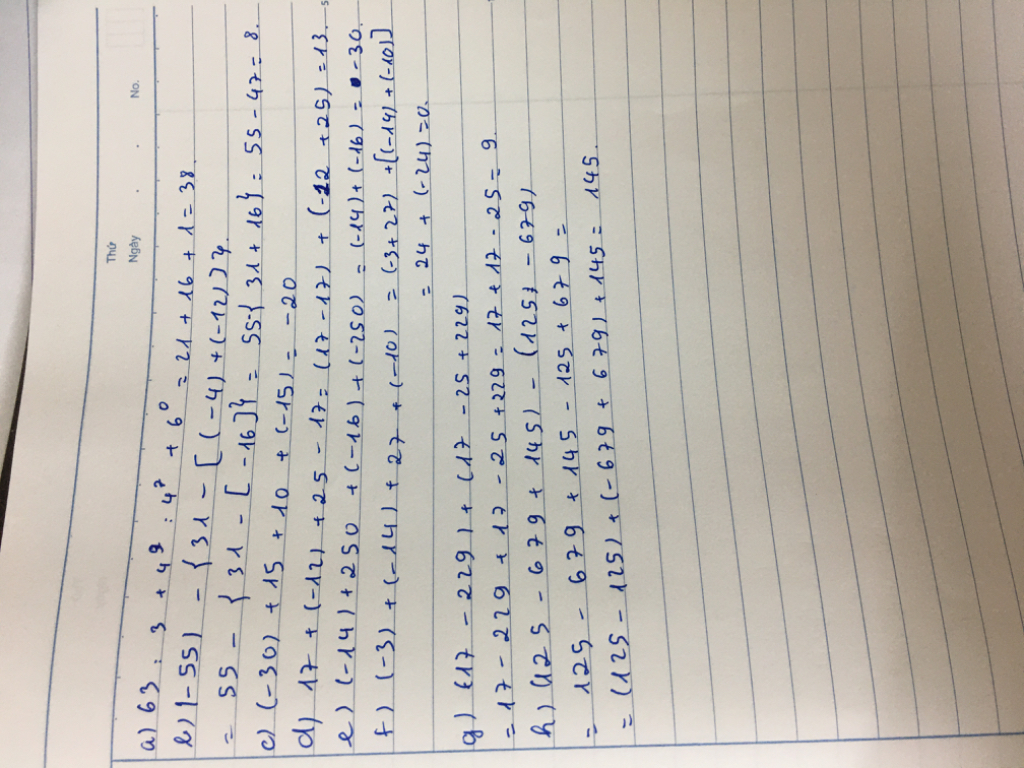 Thứ
Ngày . . No.
a) 63 : 3 + 4⁹ : 4⁷ + 6⁰ = 21 + 16 + 1 = 38
b) |-55) - { 31 - [(-4) + (-12)]}.
= 55 - { 31 - [-16]} = 55{ 31 + 16} = 55 - 47 = 8.
c) (-30) + 15 + 10 + (-15) = -20
d) 17 + (-12) + 25 - 17 = (17 - 17) + (-12 + 25) = 13.
e) (-14) + 250 + (-16) + (-250) = (-14) + (-16) = -30.
f) (-3) + (-14) + 27 + (-10) = (3 + 27) + [(-14) + (-10)]
= 24 + (-24) = 0.
g) (17 - 229) + (17 - 25 + 229)
= 17 - 229 + 17 - 25 + 229 = 17 + 17 - 25 = 9.
h) (125 - 679 + 145) - (125) - 679)
= 125 - 679 + 145 - 125 + 679 =
= (125 - 125) + (-679 + 679) + 145 = 145.